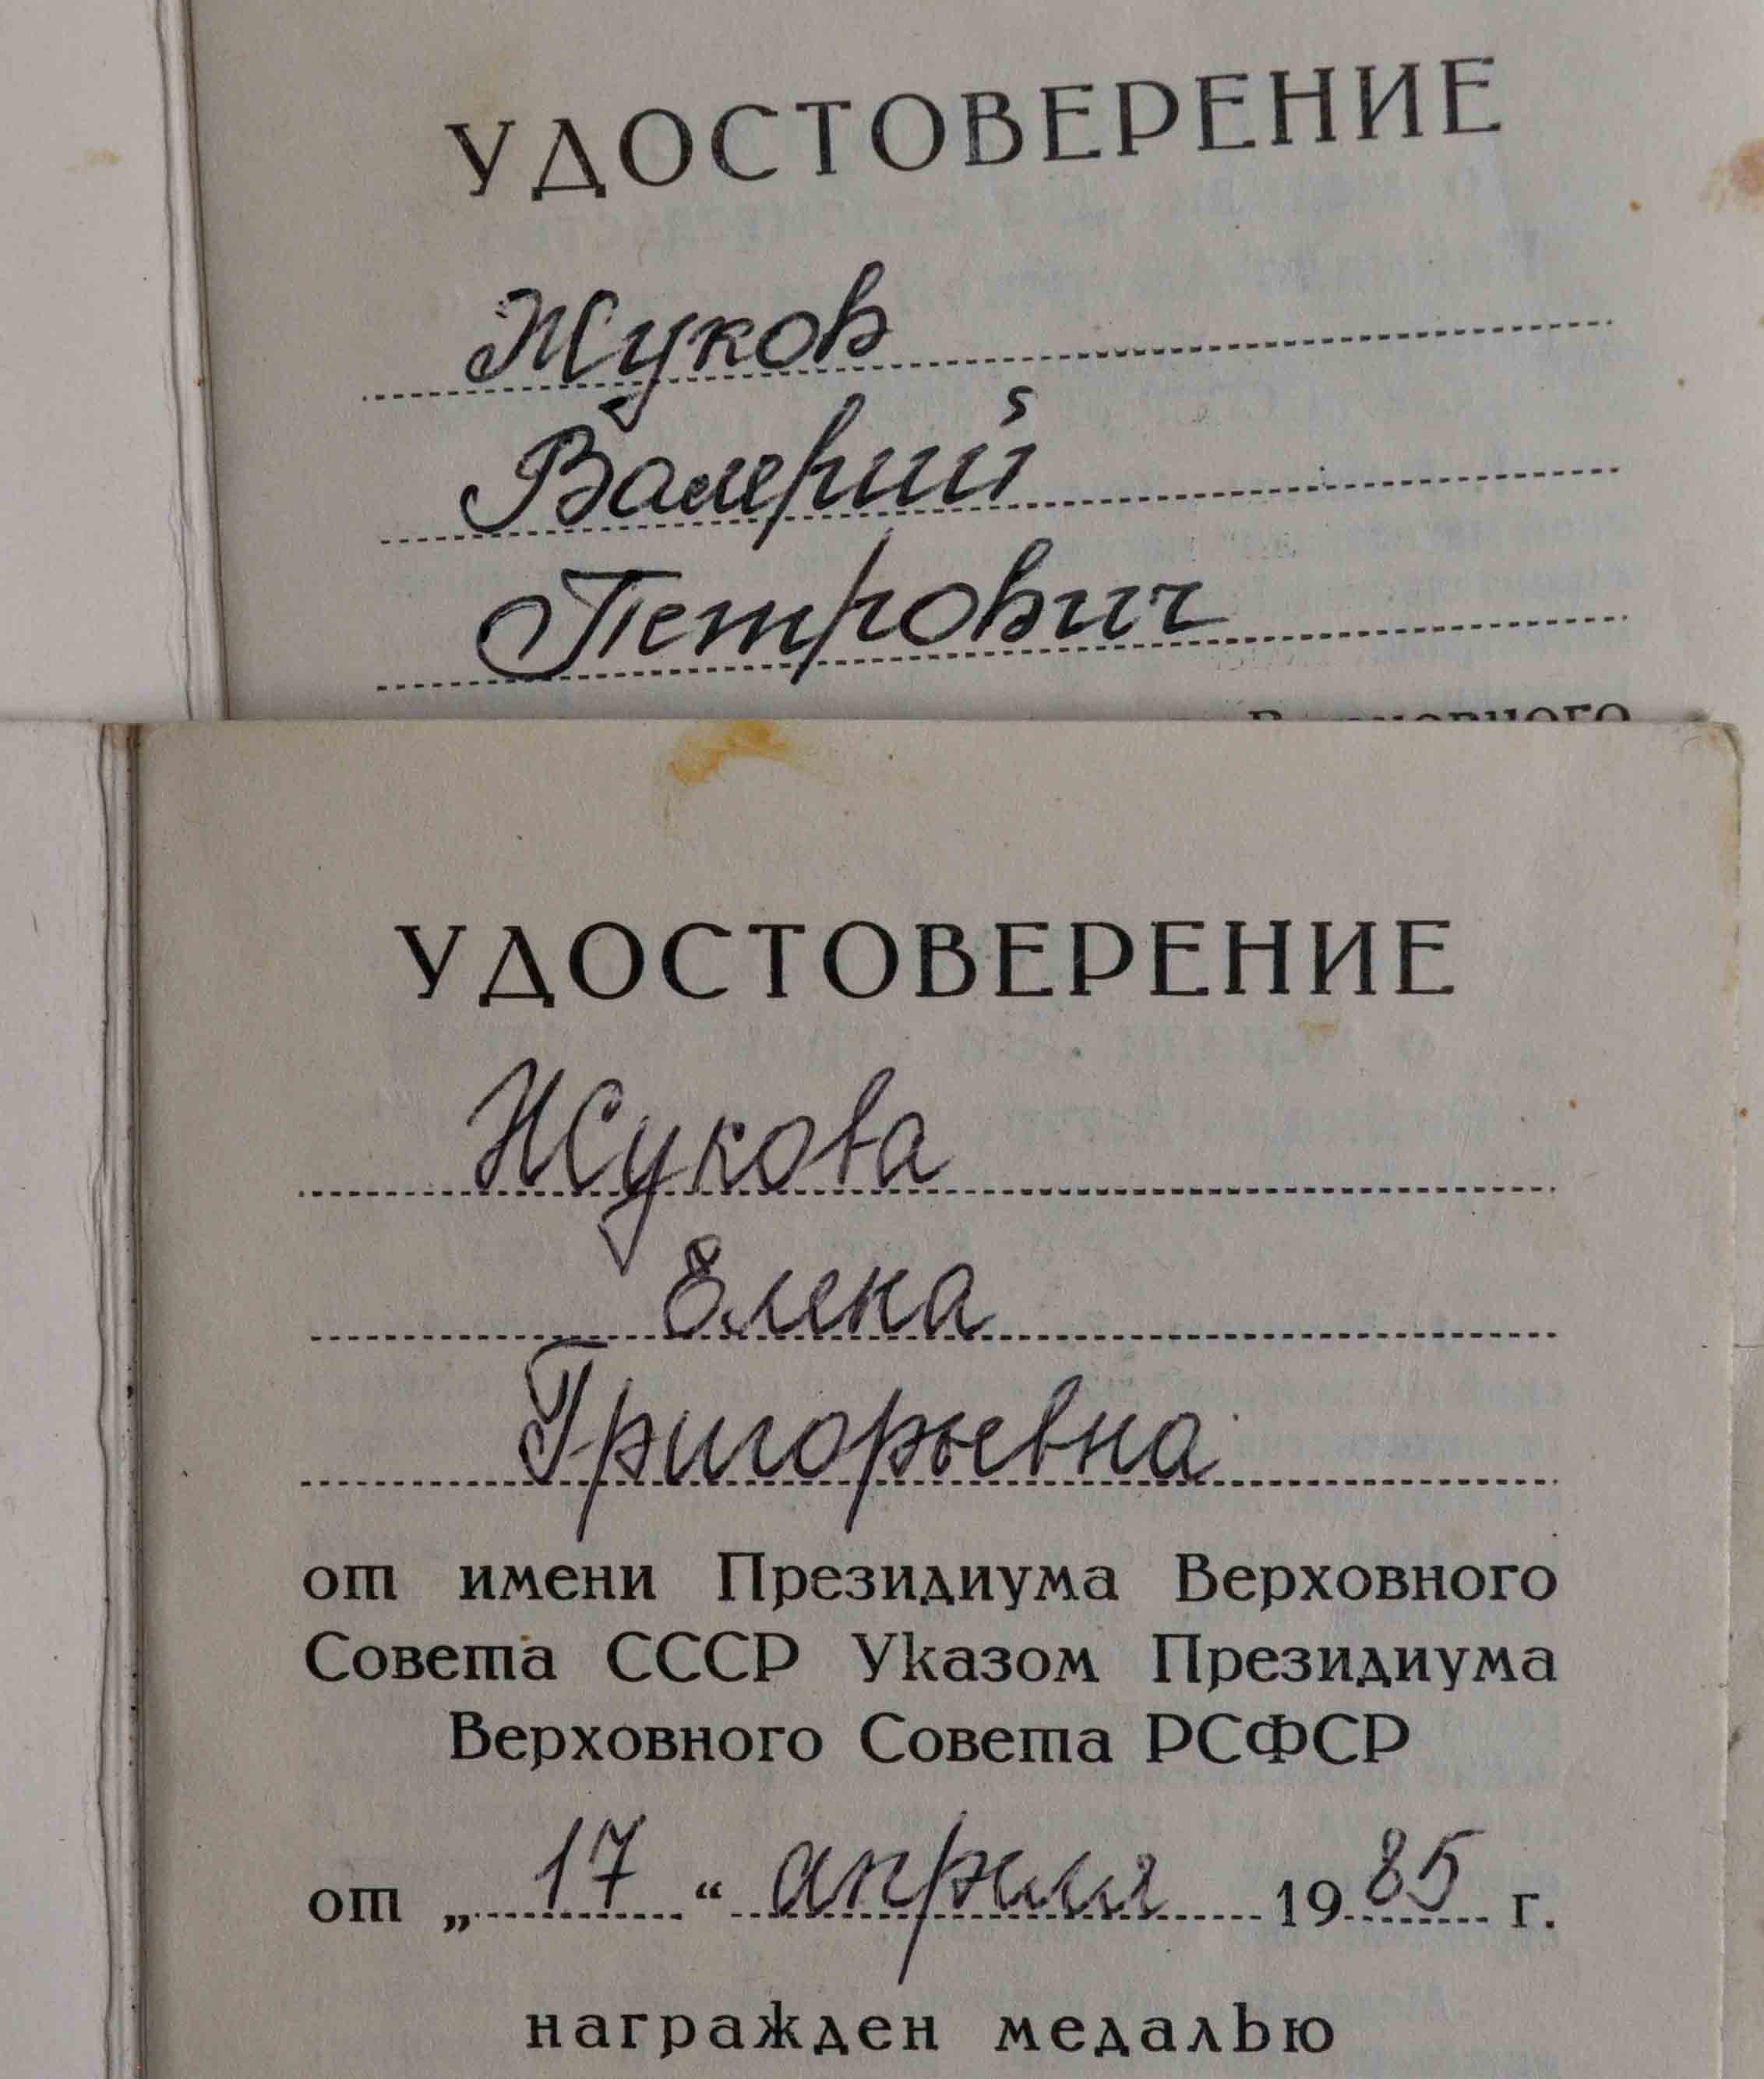 УДОСТОВЕРЕНИЕ
Жуков
Валерий
Петрович
Верховного
УДОСТОВЕРЕНИЕ
Жукова
Елена
Григорьевна
от имени Президиума Верховного
Совета СССР Указом Президиума
Верховного Совета РСФСР
от „17“ апреля 1985 г.
награжден медалью